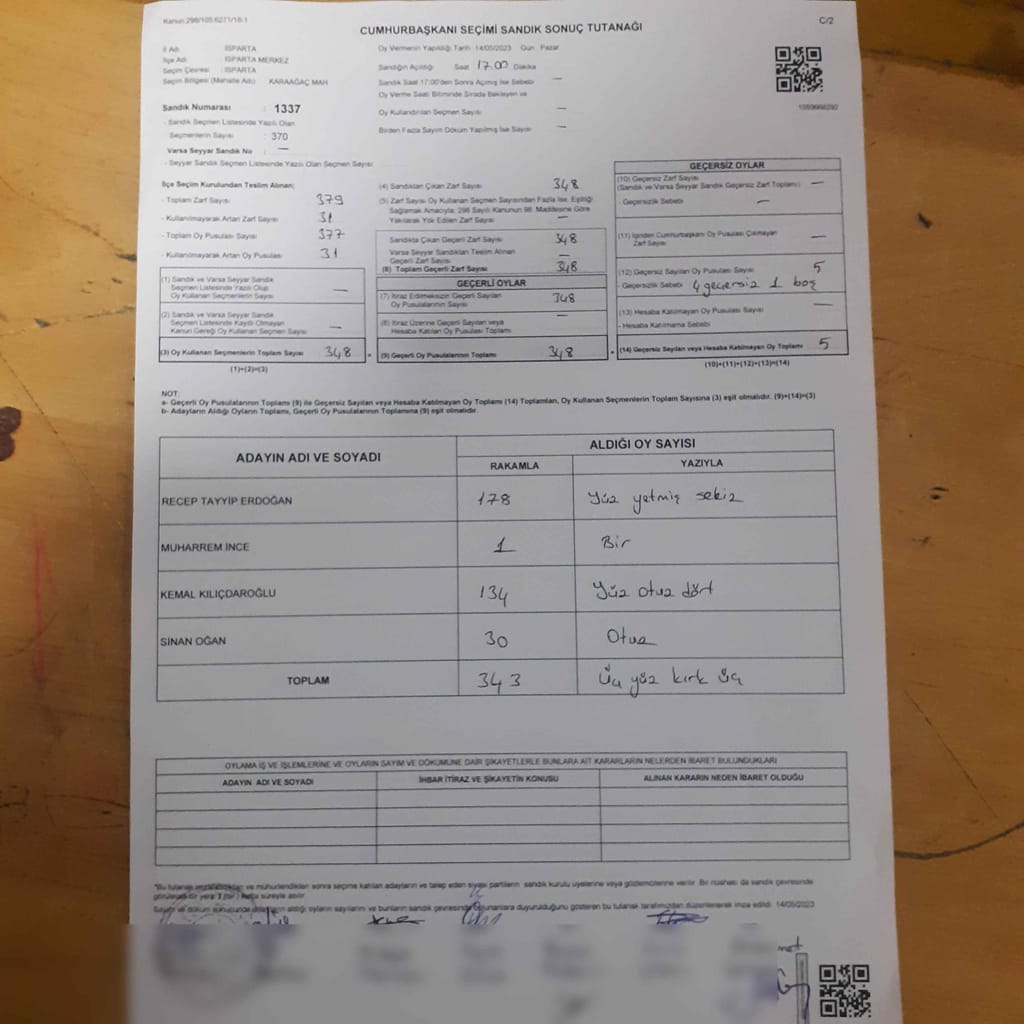 Kanun:298/105.6271/16.1
CUMHURBAŞKANI SEÇİMİ SANDIK SONUÇ TUTANAĞI
C/2
İl Adı : ISPARTA
İlçe Adı : ISPARTA MERKEZ
Seçim Çevresi : ISPARTA
Seçim Bölgesi (Mahalle Adı) : KARAAĞAÇ MAH
Sandık Numarası : 1337
- Sandık Seçmen Listesinde Yazılı Olan
Seçmenlerin Sayısı : 370
Varsa Seyyar Sandık No : —
- Seyyar Sandık Seçmen Listesinde Yazılı Olan Seçmen Sayısı
Oy Vermenin Yapıldığı Tarih : 14/05/2023 Gün : Pazar
Sandığın Açıldığı Saat 17.00 Dakika
Sandık Saat 17:00'den Sonra Açılmış İse Sebebi —
Oy Verme Saati Bitiminde Sırada Bekleyen ve
Oy Kullandırılan Seçmen Sayısı —
Birden Fazla Sayım Döküm Yapılmış İse Sayısı —
İlçe Seçim Kurulundan Teslim Alınan;
- Toplam Zarf Sayısı 379
- Kullanılmayarak Artan Zarf Sayısı 31
- Toplam Oy Pusulası Sayısı 377
- Kullanılmayarak Artan Oy Pusulası 31
(1) Sandık ve Varsa Seyyar Sandık
Seçmen Listesinde Yazılı Olup
Oy Kullanan Seçmenlerin Sayısı —
(2) Sandık ve Varsa Seyyar Sandık
Seçmen Listesinde Kayıtlı Olmayan
Kanun Gereği Oy Kullanan Seçmen Sayısı —
(3) Oy Kullanan Seçmenlerin Toplam Sayısı 348
(1)+(2)=(3)
(4) Sandıktan Çıkan Zarf Sayısı 348
(5) Zarf Sayısı Oy Kullanan Seçmen Sayısından Fazla İse, Eşitliği
Sağlamak Amacıyla; 298 Sayılı Kanunun 98. Maddesine Göre
Yakılarak Yok Edilen Zarf Sayısı —
Sandıkta Çıkan Geçerli Zarf Sayısı 348
Varsa Seyyar Sandıktan Teslim Alınan
Geçerli Zarf Sayısı —
(6) Toplam Geçerli Zarf Sayısı 348
GEÇERLİ OYLAR
(7) İtiraz Edilmeksizin Geçerli Sayılan
Oy Pusulalarının Sayısı 348
(8) İtiraz Üzerine Geçerli Sayılan veya
Hesaba Katılan Oy Pusulası Toplamı —
= (9) Geçerli Oy Pusulalarının Toplamı 348
GEÇERSİZ OYLAR
(10) Geçersiz Zarf Sayısı
(Sandık ve Varsa Seyyar Sandık Geçersiz Zarf Toplamı) —
- Geçersizlik Sebebi —
(11) İçinden Cumhurbaşkanı Oy Pusulası Çıkmayan
Zarf Sayısı —
(12) Geçersiz Sayılan Oy Pusulası Sayısı 5
- Geçersizlik Sebebi 4 geçersiz 1 boş
(13) Hesaba Katılmayan Oy Pusulası Sayısı —
- Hesaba Katılmama Sebebi
+ (14) Geçersiz Sayılan veya Hesaba Katılmayan Oy Toplamı 5
(10)+(11)+(12)+(13)=(14)
NOT:
a- Geçerli Oy Pusulalarının Toplamı (9) ile Geçersiz Sayılan veya Hesaba Katılmayan Oy Toplamı (14) Toplamları, Oy Kullanan Seçmenlerin Toplam Sayısına (3) eşit olmalıdır. (9)+(14)=(3)
b- Adayların Aldığı Oyların Toplamı, Geçerli Oy Pusulalarının Toplamına (9) eşit olmalıdır.
ADAYIN ADI VE SOYADI
ALDIĞI OY SAYISI
RAKAMLA YAZIYLA
RECEP TAYYİP ERDOĞAN 178 Yüz yetmiş sekiz
MUHARREM İNCE 1 Bir
KEMAL KILIÇDAROĞLU 134 Yüz otuz dört
SİNAN OĞAN 30 Otuz
TOPLAM 343 Üç yüz kırk üç
OYLAMA İŞ VE İŞLEMLERİNE VE OYLARIN SAYIM VE DÖKÜMÜNE DAİR ŞİKAYETLERLE BUNLARA AİT KARARLARIN NELERDEN İBARET BULUNDUKLARI
ADAYIN ADI VE SOYADI İHBAR İTİRAZ VE ŞİKAYETİN KONUSU ALINAN KARARIN NEDEN İBARET OLDUĞU
"Bu tutanak imzalandıktan ve mühürlendikten sonra seçime katılan adayların ve talep eden siyasi partilerin sandık kurulu üyelerine veya gözlemcilerine verilir. Bir nüshası da sandık çevresinde
görülecek bir yere 1 (bir) hafta süreyle asılır.
Sayım ve döküm sonucunda adayların aldığı oyların sayılarını ve bunların sandık çevresinde bulunanlara duyurulduğunu gösteren bu tutanak tarafımızdan düzenlenerek imza edildi. 14/05/2023